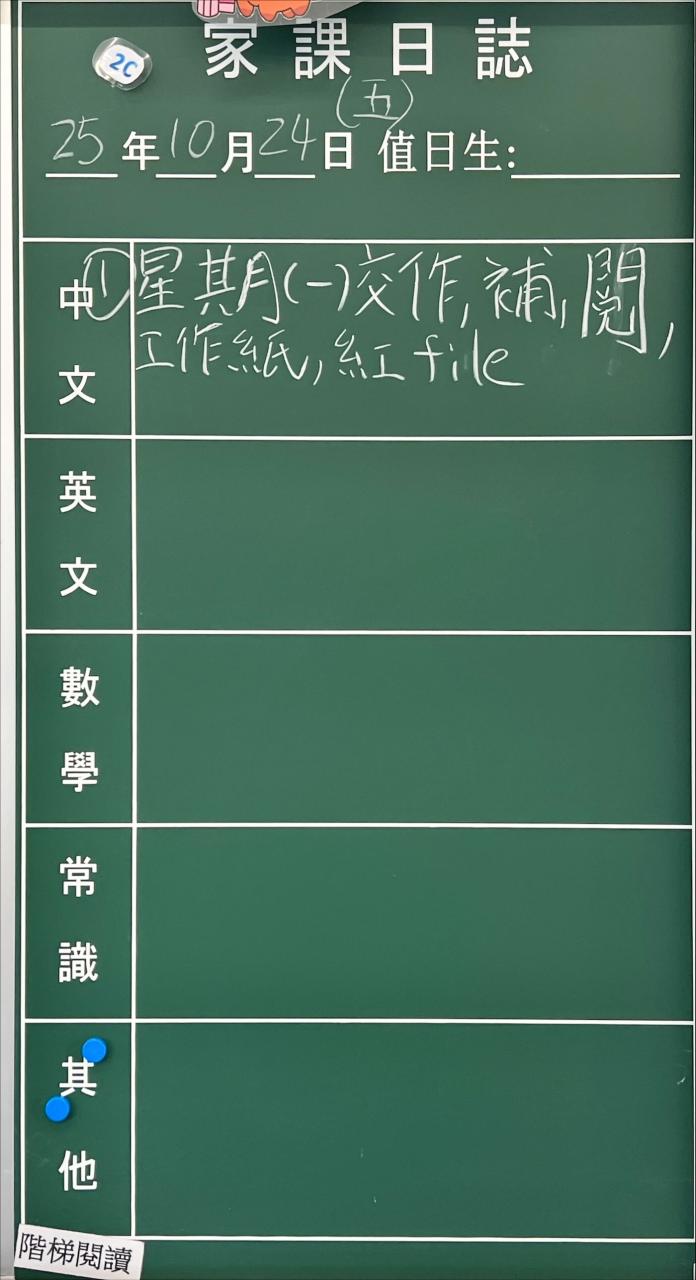 家課日誌
2C
(五)
25年10月24日 值日生:
中文
①星期(一)交作,補,閱,
工作紙,紅file
英文
數學
常識
其他
階梯閱讀